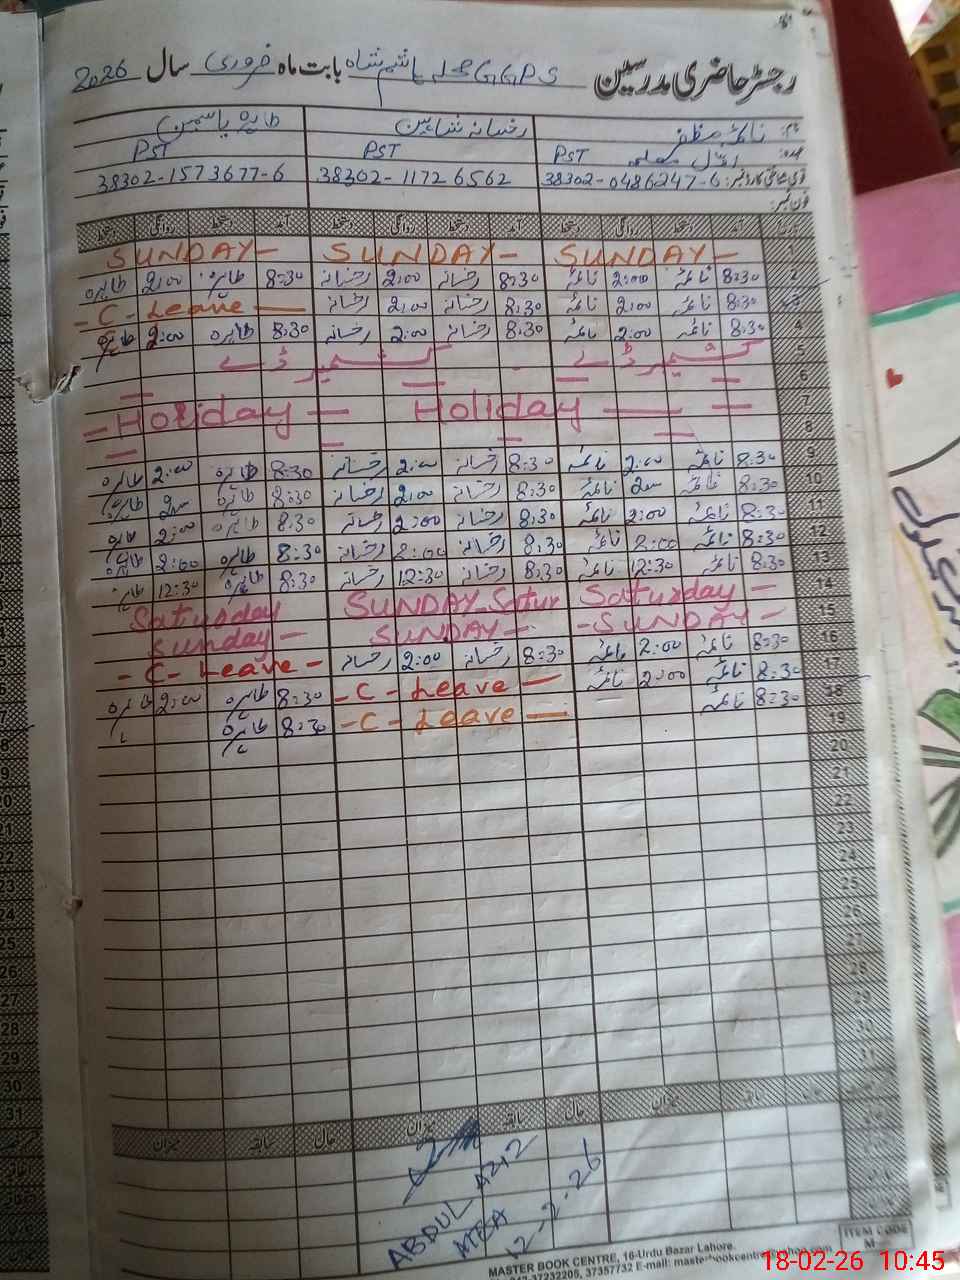 رجسٹر حاضری مدرسین GGPS محلہ ہاشم شاہ بابت ماہ فروری سال 2026
نام: نائمہ مظفر رخسانہ شاہین طاہرہ یاسمین
عہدہ: PST PST PST
قومی شناختی کارڈ نمبر: 38302-0486247-6 38302-11726562 38302-1573677-6
فون نمبر:
آمد دستخط روانگی دستخط آمد دستخط روانگی دستخط آمد دستخط روانگی دستخط
1 SUNDAY- SUNDAY- SUNDAY-
2 8:30 نائمہ 2:00 نائمہ 8:30 رخسانہ 2:00 رخسانہ 8:30 طاہرہ 2:00 طاہرہ
3 8:30 نائمہ 2:00 نائمہ 8:30 رخسانہ 2:00 رخسانہ - C - Leave -
8:30 نائمہ 2:00 نائمہ 8:30 رخسانہ 2:00 رخسانہ 8:30 طاہرہ 2:00 طاہرہ
5 کشمیر ڈے کشمیر ڈے
6
7 Holiday - Holiday -
8
9 8:30 نائمہ 2:00 نائمہ 8:30 رخسانہ 2:00 رخسانہ 8:30 طاہرہ 2:00 طاہرہ
10 8:30 نائمہ نائمہ 8:30 رخسانہ 2:00 رخسانہ 8:30 طاہرہ طاہرہ
11 8:30 نائمہ 2:00 نائمہ 8:30 رخسانہ 2:00 رخسانہ 8:30 طاہرہ 2:00 طاہرہ
12 8:30 نائمہ 2:00 نائمہ 8:30 رخسانہ 2:00 رخسانہ 8:30 طاہرہ 2:00 طاہرہ
13 8:30 نائمہ 12:30 نائمہ 8:30 رخسانہ 12:30 رخسانہ 8:30 طاہرہ 12:30 طاہرہ
14 Saturday - SUNDAY Satur Saturday
15 - SUNDAY - SUNDAY - Sunday -
16 8:30 نائمہ 2:00 نائمہ 8:30 رخسانہ 2:00 رخسانہ - C - Leave -
17 8:30 نائمہ 2:00 نائمہ - C - Leave - 8:30 طاہرہ 2:00 طاہرہ
18 8:30 نائمہ - C - Leave - 8:30 طاہرہ
19
20
21
22
23
24
25
26
27
28
29
30
31
حال میزان حال سابقہ میزان حال سابقہ میزان
ABDUL AZIZ
12-2-26
ITEM CODE
MASTER BOOK CENTRE, 16-Urdu Bazar Lahore.
37232205, 37357732 E-mail: masterbookcentre@yahoo.com
18-02-26 10:45